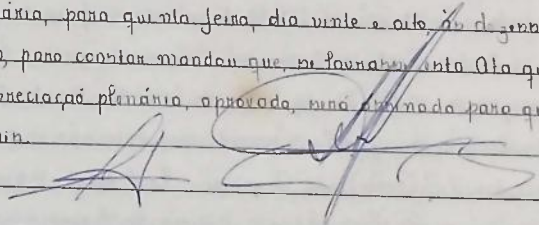 ária, para quinta feira, dia vinte e oito, às dezenn
, para constar mandou que, se lavrasse Ata qu
reciação plenária, aprovada, será assinada para qu